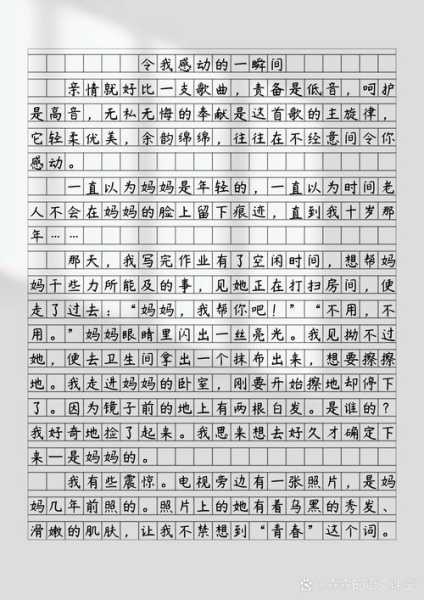 令我感动的一瞬间
亲情就好比一支歌曲，责备是低音，呵护
是高音，无私无悔的奉献是这首歌的主旋律，
它轻柔优美，余韵绵绵，往往在不经意间令你
感动。
一直以为妈妈是年轻的，一直以为时间老
人不会在妈妈的脸上留下痕迹，直到我十岁那
年……
那天，我写完作业有了空闲时间，想帮妈
妈干些力所能及的事，见她正在打扫房间，便
走了过去：“妈妈，我帮你吧！”“不用，不
用。”妈妈眼睛里闪出一丝亮光。我见拗不过
她，便去卫生间拿出一个抹布出来，想要擦擦
地。我走进妈妈的卧室，刚要开始擦地却停下
了。因为镜子前的地上有两根白发。是谁的？
我好奇地捡了起来。我思来想去好久才确定下
来—是妈妈的。
我有些震惊。电视旁边有一张照片，是妈
妈几年前照的。照片上的她有着乌黑的秀发、
滑嫩的肌肤，让我不禁想到“青春”这个词。